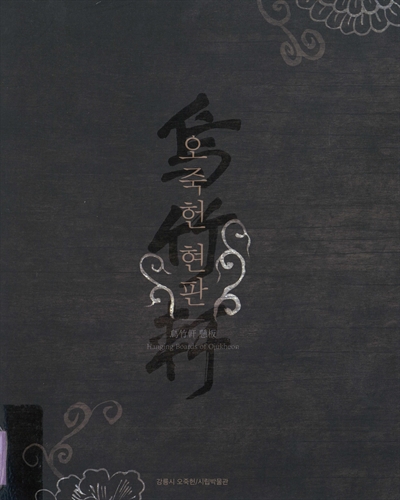 烏竹軒
오죽헌 현판
烏竹軒 懸板
Hanging Boards of Ojukheon
강릉시 오죽헌/시립박물관